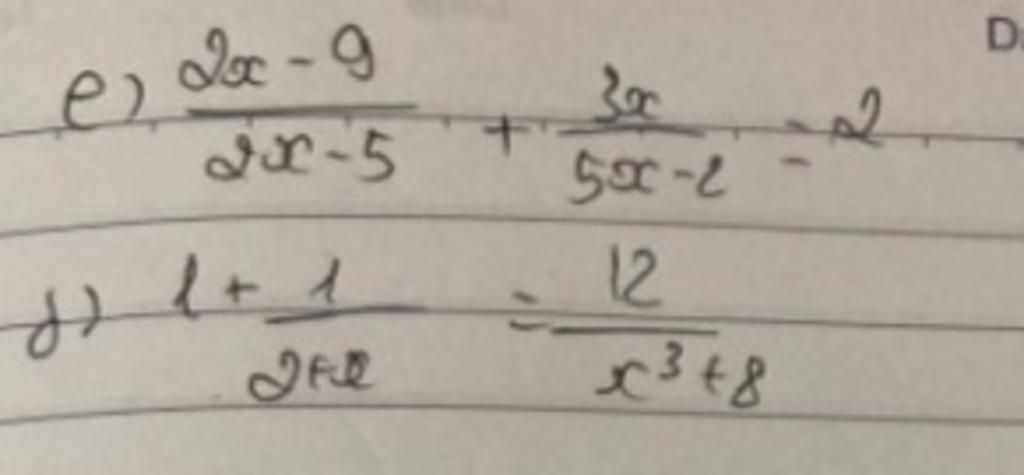 D.
e) \frac{2x - 9}{2x - 5} + \frac{3x}{5x - 2} = 2
f) 1 + \frac{1}{2+x} = \frac{12}{x^3 + 8}